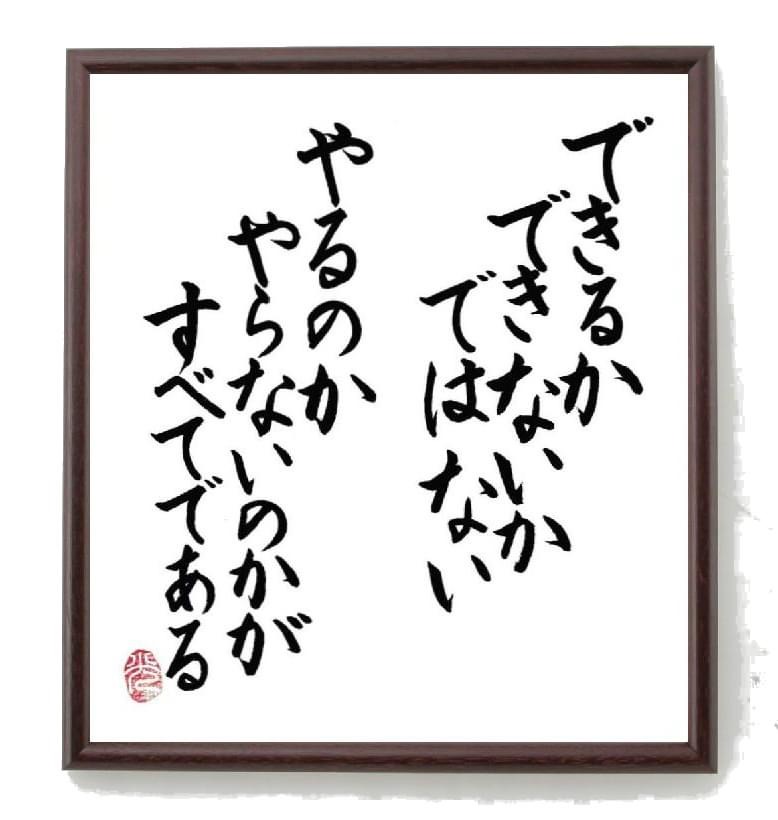 できるか
できないか
ではない
やるのか
やらないのかが
すべてである